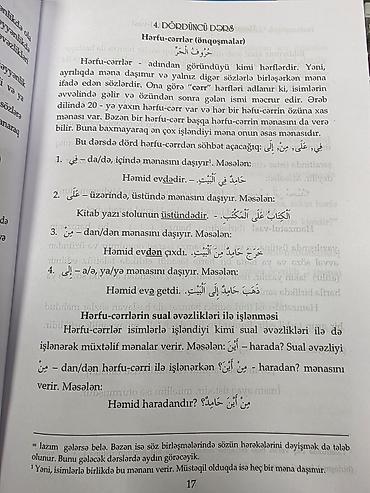 4. DÖRDÜNCÜ DƏRS
Hərfu-cərrlər (önqoşmalar)
حُرُوفُ الْجَرِّ
Hərfu-cərrlər - adından göründüyü kimi hərflərdir. Yəni,
ayrılıqda məna daşımır və yalnız digər sözlərlə birləşərkən məna
ifadə edən sözlərdir. Ona görə "cərr" hərfləri adlanır ki, isimlərin
əvvəlinə gəlir və özündən sonra gələn ismi məcrur edir. Ərəb
dilində 20 - yə yaxın hərfu-cərr var və hər bir hərfu-cərrin özünə xas
mənası var. Bəzən bir hərfu-cərr başqa hərfu-cərrin mənasını da verə
bilir. Buna baxmayaraq ən çox işləndiyi məna onun əsas mənasıdır.
Bu dərsdə dörd hərfu-cərrdən söhbət açacağıq: فِي, عَلَى, مِنْ, إِلَى
1. فِي – da/də, içində mənasını daşıyır¹. Məsələn:
Həmid evdədir. – حَامِدٌ فِي الْبَيْتِ.
2. عَلَى – üzərində, üstündə mənasını daşıyır. Məsələn:
Kitab yazı stolunun üstündədir. - الْكِتَابُ عَلَى الْمَكْتَبِ.
3. مِنْ – dan/dən mənasını daşıyır. Məsələn:
Həmid evdən çıxdı. خَرَجَ حَامِدٌ مِنَ الْبَيْتِ.
4. إِلَى – a/ə, ya/yə mənasını daşıyır. Məsələn:
Həmid evə getdi. ذَهَبَ حَامِدٌ إِلَى الْبَيْتِ.
Hərfu-cərrlərin sual əvəzlikləri ilə işlənməsi
Hərfu-cərrlər isimlərlə işləndiyi kimi sual əvəzlikləri ilə də
işlənərək müxtəlif mənalar verir. Məsələn: أَيْنَ – harada? Sual əvəzliyi
مِنْ – dan/dən hərfu-cərri ilə işlənərkən مِنْ أَيْنَ؟ - haradan? mənasını
verir. Məsələn:
Həmid haradandır? مِنْ أَيْنَ حَامِدٌ؟
lazım gələrsə belə. Bəzən isə söz birləşmələrində sözün hərəkələrini dəyişmək də tələb
olunur. Bunu gələcək dərslərdə aydın görəcəyik.
¹ Yəni, isimlərlə birlikdə bu mənanı verir. Müstəqil olduqda isə heç bir məna daşımır.
17